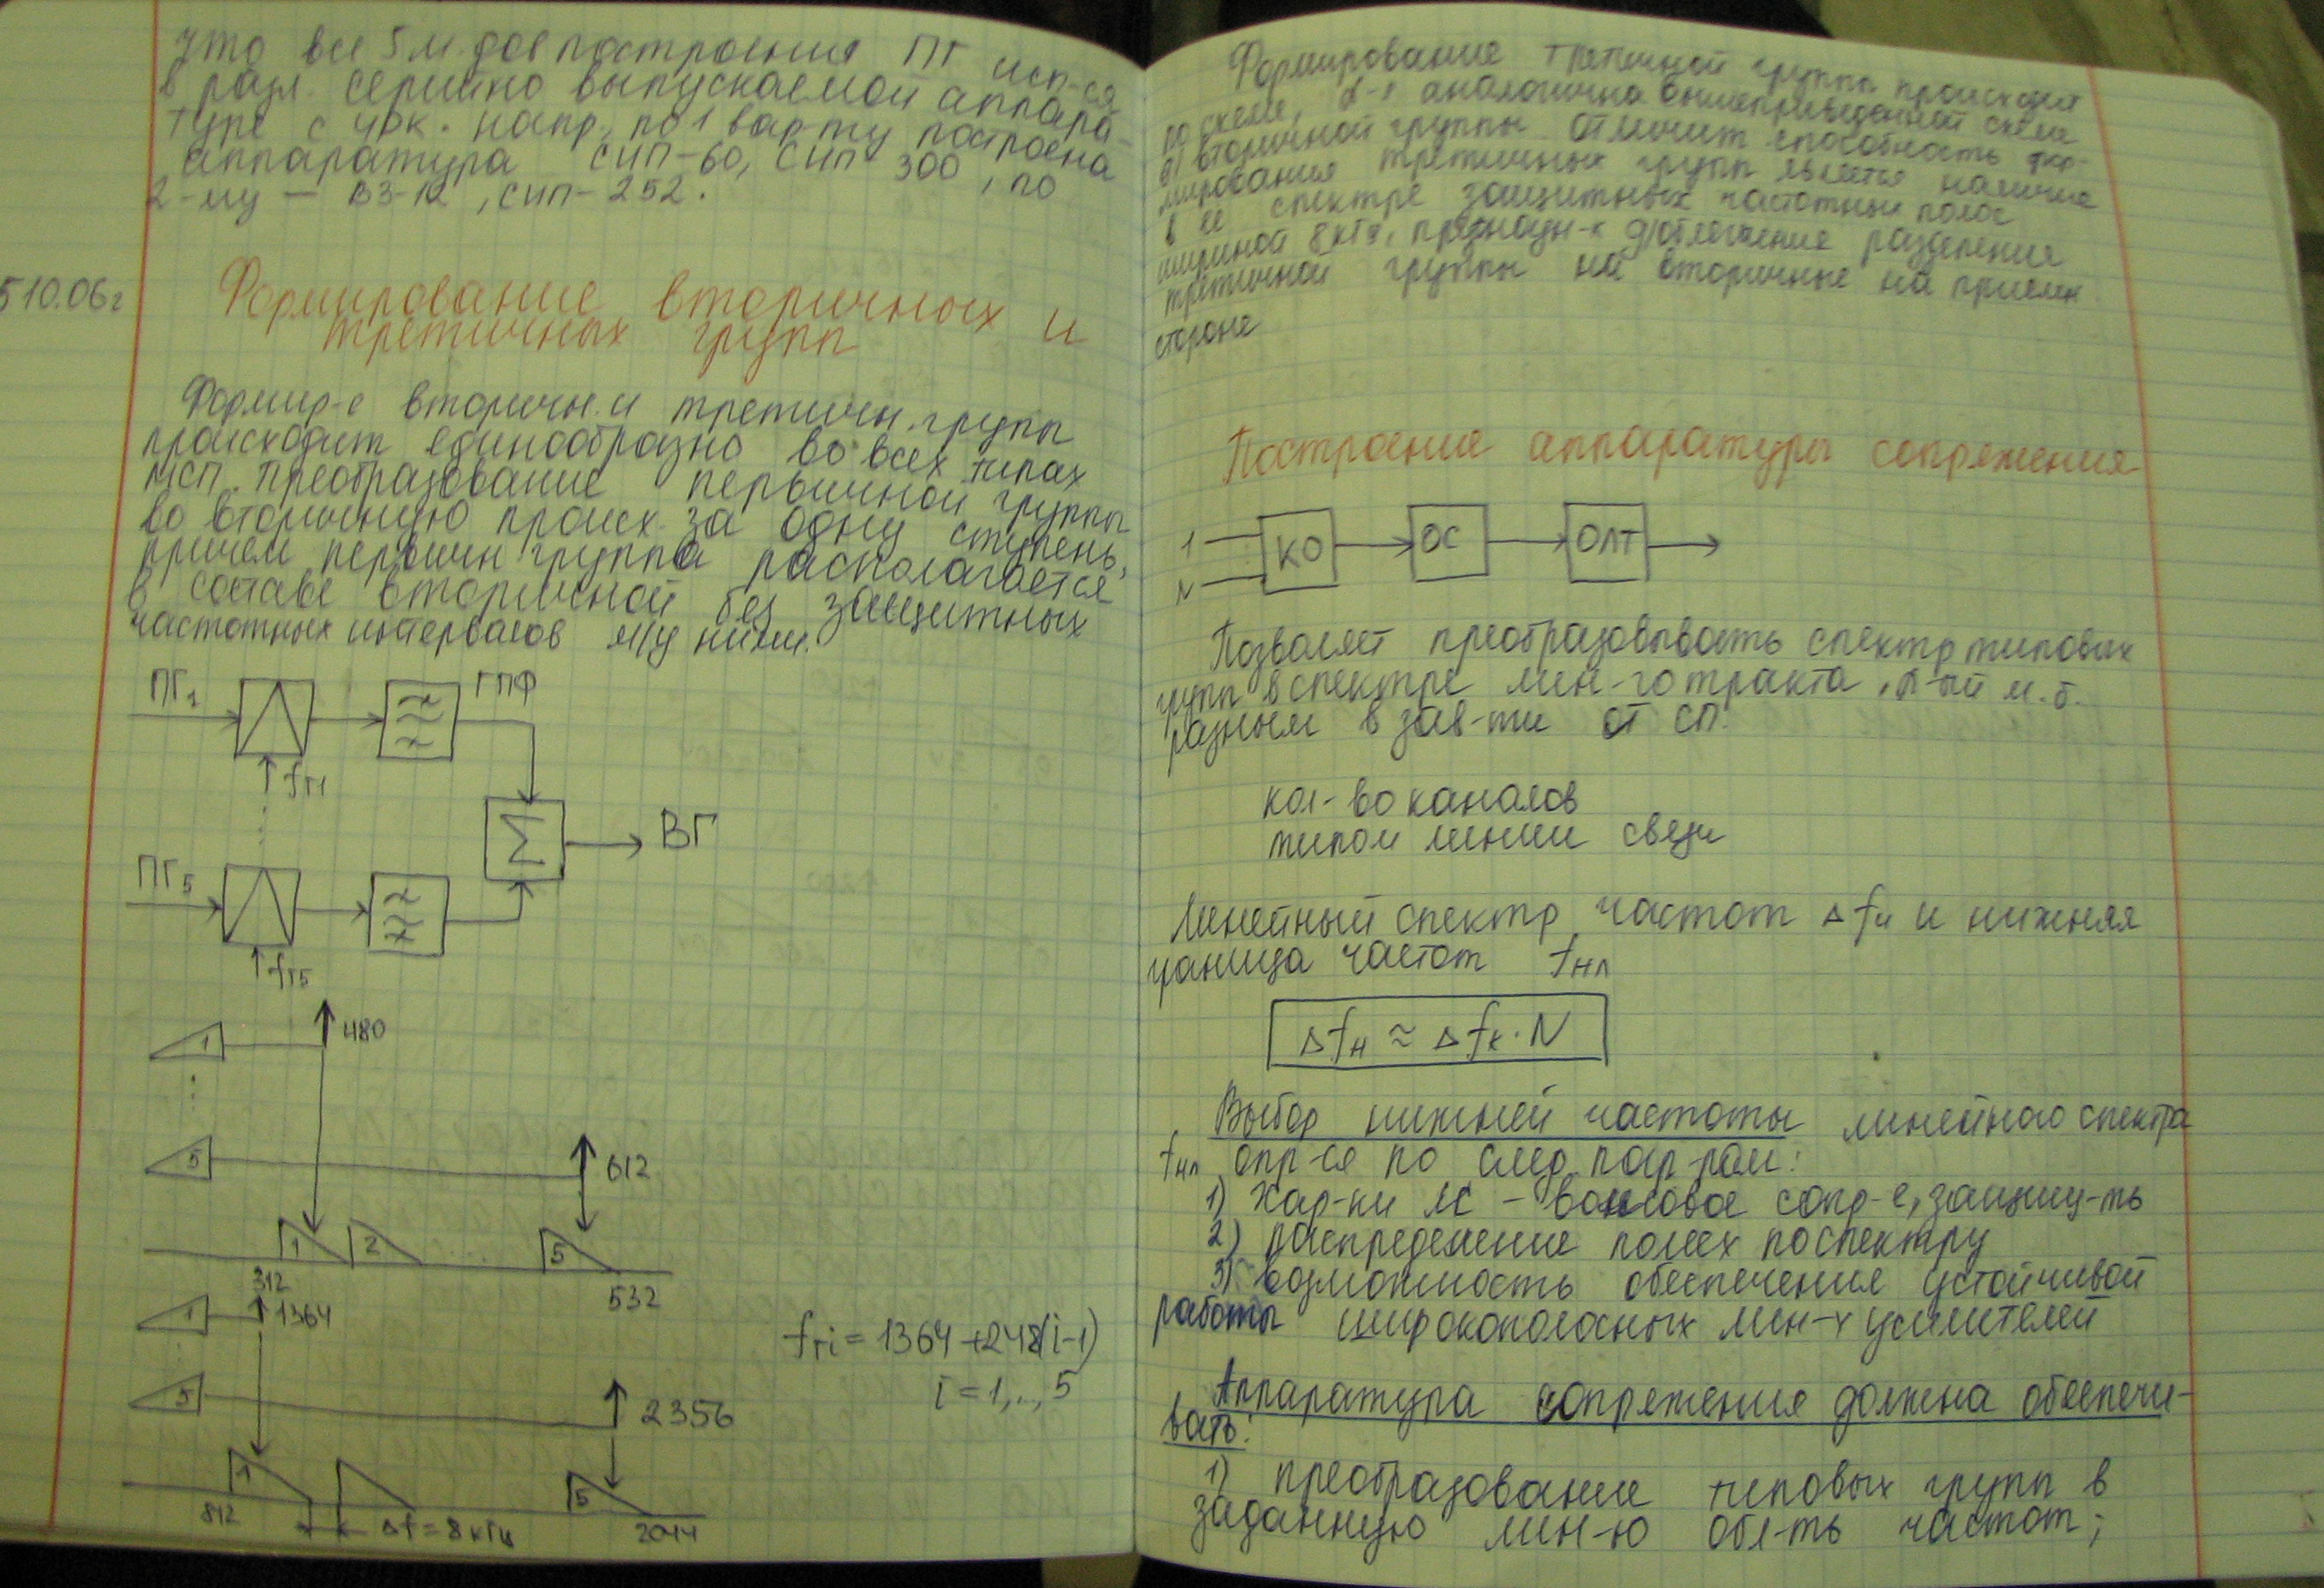 что все 5 м-дов построения ПГ исп-ся
в разл. серийно выпускаемой аппара-
туре с ЧРК. напр., по 1 вар-ту построена
аппаратура СИП-60, СИП 300, по
2-му — В3-12, СИП-252.
5 10.06г
Формирование вторичных и
третичных групп
Формир-е вторичн. и третичн. групп
происходит единообразно во всех типах
МСП. Преобразование первичной группы
во вторичную происх. за одну ступень,
причем первичн группа располагается
в составе вторичной без защитных
частотных интервалов м/у ними.
ПГ1
ГПФ
fГ1
Σ
ВГ
ПГ5
fГ5
1
480
5
612
1
2
5
312
532
1
1364
fгi = 1364 + 248(i-1)
i = 1,.., 5
5
2356
1
5
812
Δf = 8 кГц
2044
Формирование третичной группы происходит
по схеме, к-я аналогична вышеприведенной схеме
д/ вторичной группы. Отличит способность фор-
мирования третичных групп является наличие
в ее спектре защитных частотных полос
шириной 8 кГц, предназн-х д/облегчения разделения
третичной группы на вторичные на приемн
стороне
Построение аппаратуры сопряжения
1
N
КО
ОС
ОЛТ
Позволяет преобразовывать спектр типовых
групп в спектре лин-го тракта, к-ый м.б.
разным в зав-ти от СП.
кол-во каналов
типом линии связи
Линейный спектр частот Δfн и нижняя
граница частот fнл
Δfн ≈ Δfк · N
Выбор нижней частоты линейного спектра
fнл опр-ся по след. пар-рам:
1) Хар-ки ЛС – волновое сопр-е, защищ-ть
2) распределение помех по спектру
3) возможность обеспечения устойчивой
работы широкополосных лин-х усилителей
Аппаратура сопряжения должна обеспечи-
вать:
1) преобразование типовых групп в
заданную лин-ю обл-ть частот;